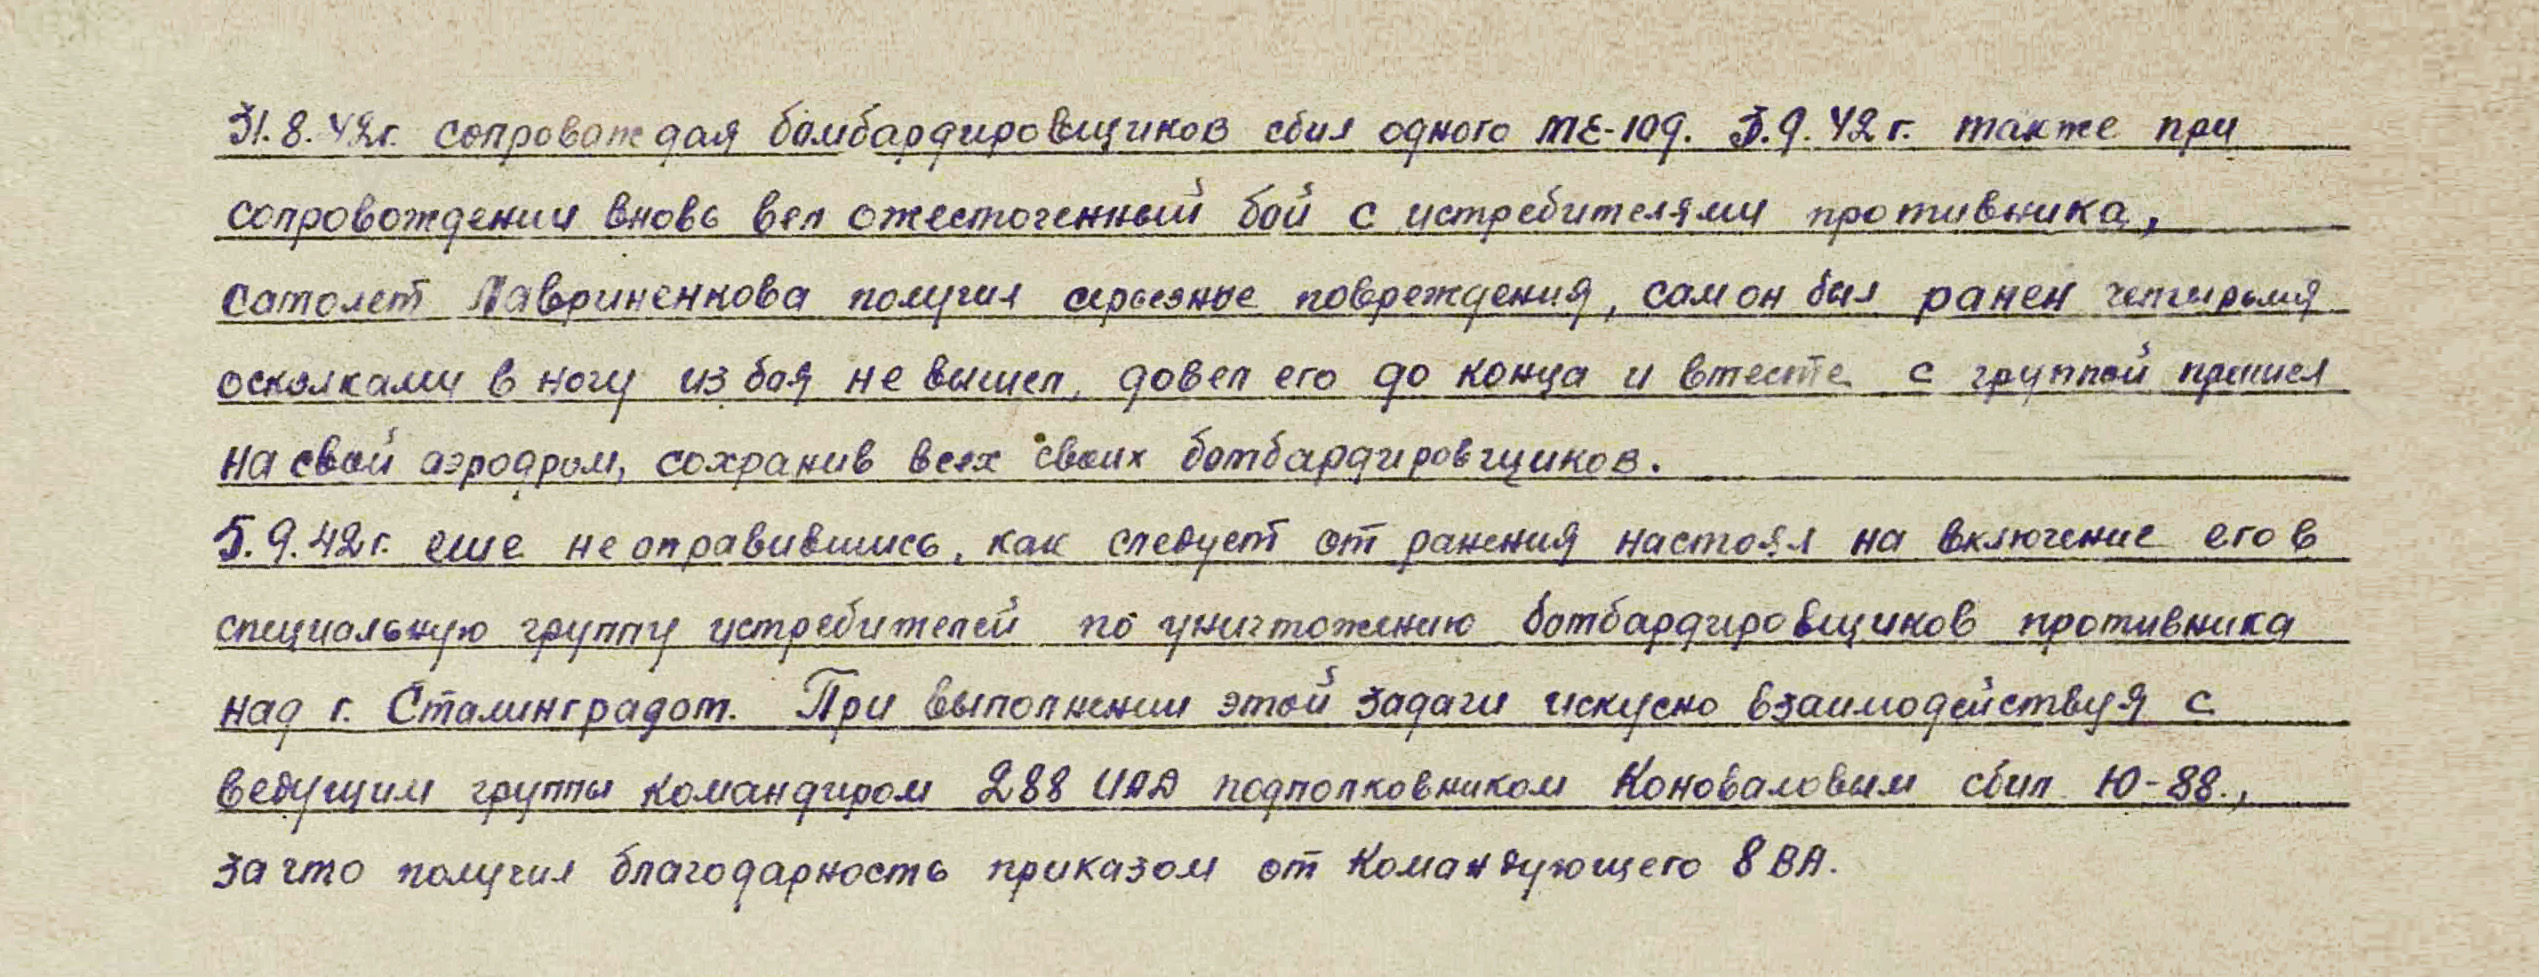 31.8.42г. сопроваждая бомбардировщиков сбил одного МЕ-109. 3.9.42г. также при
сопровождении вновь вел ожесточенный бой с истребителями противника,
самолет Лавриненкова получил серьезные повреждения, сам он был ранен четырьмя
осколками в ногу из боя не вышел, довел его до конца и вместе с группой пришел
на свой аэродром, сохранив всех своих бомбардировщиков.
5.9.42г. еще не оправившись, как следует от ранения настоял на включение его в
специальную группу истребителей по уничтожению бомбардировщиков противника
над г. Сталинградом. При выполнении этой задачи искусно взаимодействуя с
ведущим группы командиром 288 ИАД подполковником Коноваловым сбил Ю-88.,
за что получил благодарность приказом от Командующего 8 ВА.